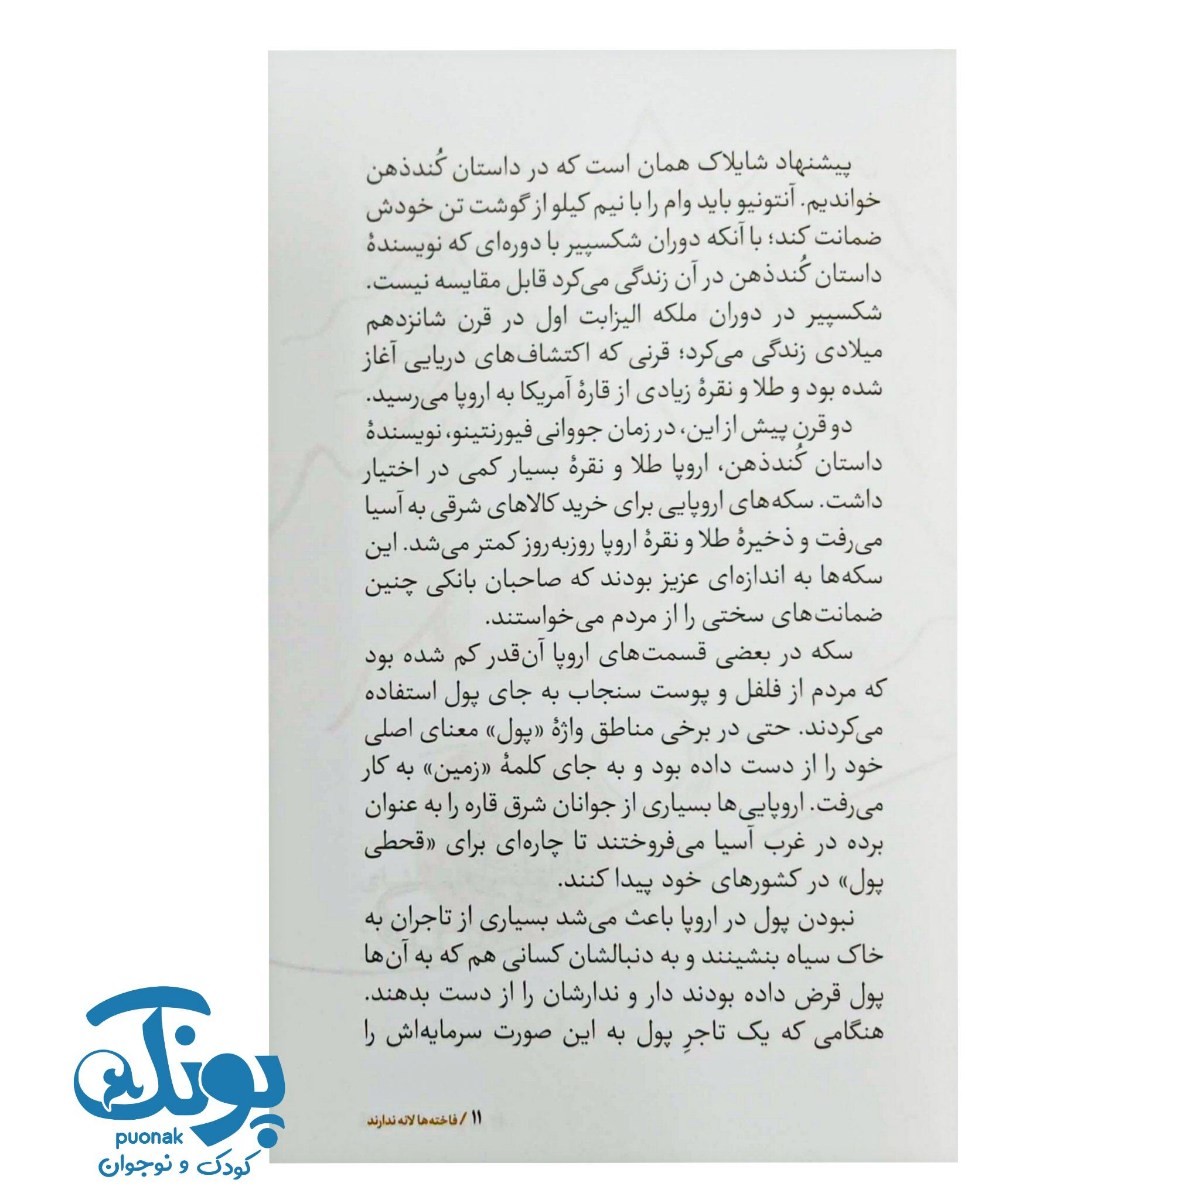 پیشنهاد شایلاک همان است که در داستان کُندذهن
خواندیم. آنتونیو باید وام را با نیم کیلو از گوشت تن خودش
ضمانت کند؛ با آنکه دوران شکسپیر با دوره‌ای که نویسندهٔ
داستان کُندذهن در آن زندگی می‌کرد قابل مقایسه نیست.
شکسپیر در دوران ملکه الیزابت اول در قرن شانزدهم
میلادی زندگی می‌کرد؛ قرنی که اکتشاف‌های دریایی آغاز
شده بود و طلا و نقرهٔ زیادی از قارهٔ آمریکا به اروپا می‌رسید.
دو قرن پیش از این، در زمان جووانی فیورنتینو، نویسندهٔ
داستان کُندذهن، اروپا طلا و نقرهٔ بسیار کمی در اختیار
داشت. سکه‌های اروپایی برای خرید کالاهای شرقی به آسیا
می‌رفت و ذخیرهٔ طلا و نقرهٔ اروپا روزبه‌روز کمتر می‌شد. این
سکه‌ها به اندازه‌ای عزیز بودند که صاحبان بانکی چنین
ضمانت‌های سختی را از مردم می‌خواستند.
سکه در بعضی قسمت‌های اروپا آن‌قدر کم شده بود
که مردم از فلفل و پوست سنجاب به جای پول استفاده
می‌کردند. حتی در برخی مناطق واژهٔ «پول» معنای اصلی
خود را از دست داده بود و به جای کلمهٔ «زمین» به کار
می‌رفت. اروپایی‌ها بسیاری از جوانان شرق قاره را به عنوان
برده در غرب آسیا می‌فروختند تا چاره‌ای برای «قحطی
پول» در کشورهای خود پیدا کنند.
نبودن پول در اروپا باعث می‌شد بسیاری از تاجران به
خاک سیاه بنشینند و به دنبالشان کسانی هم که به آن‌ها
پول قرض داده بودند دار و ندارشان را از دست بدهند.
هنگامی که یک تاجرِ پول به این صورت سرمایه‌اش را
۱۱ / فاخته‌ها لانه ندارند
پونک
puonak
کودک و نوجوان